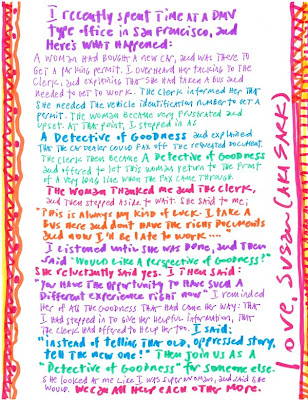 I recently spent time at a DMV
type office in San Francisco, and
Here's what happened:
A woman had bought a new car, and was there to
get a parking permit. I overheard her talking to the
clerk, and explaining that she had taken a bus and
needed to get to work. The clerk informed her that
she needed the vehicle identification number to get a
permit. The woman became very frustrated and
upset. At that point, I stepped in as
A Detective of Goodness and explained
that the car dealer could fax off the requested document.
The clerk then became A Detective of Goodness
and offered to let this woman return to the front
of a very long line when the fax came through.
The woman thanked me and the clerk,
and then stepped aside to wait. She said to me;
"This is always my kind of luck. I take a
bus here and don't have the right documents
and now I'll be late to work...."
I listened until she was done, and then
said "Would you like a perspective of goodness?"
She reluctantly said yes. I then said:
"You have the opportunity to have such a
different experience right now" I reminded
her of all the goodness that had come her way: that
I had stepped in to give her helpful information, that
the clerk had offered to help her too. I said:
"instead of telling that old, oppressed story,
tell the new one!" Then join us as a
"Detective of Goodness" for someone else.
She looked at me like I was superwoman, and said she
would. We can all help each other more.
Love, Susan (AKA SARK)